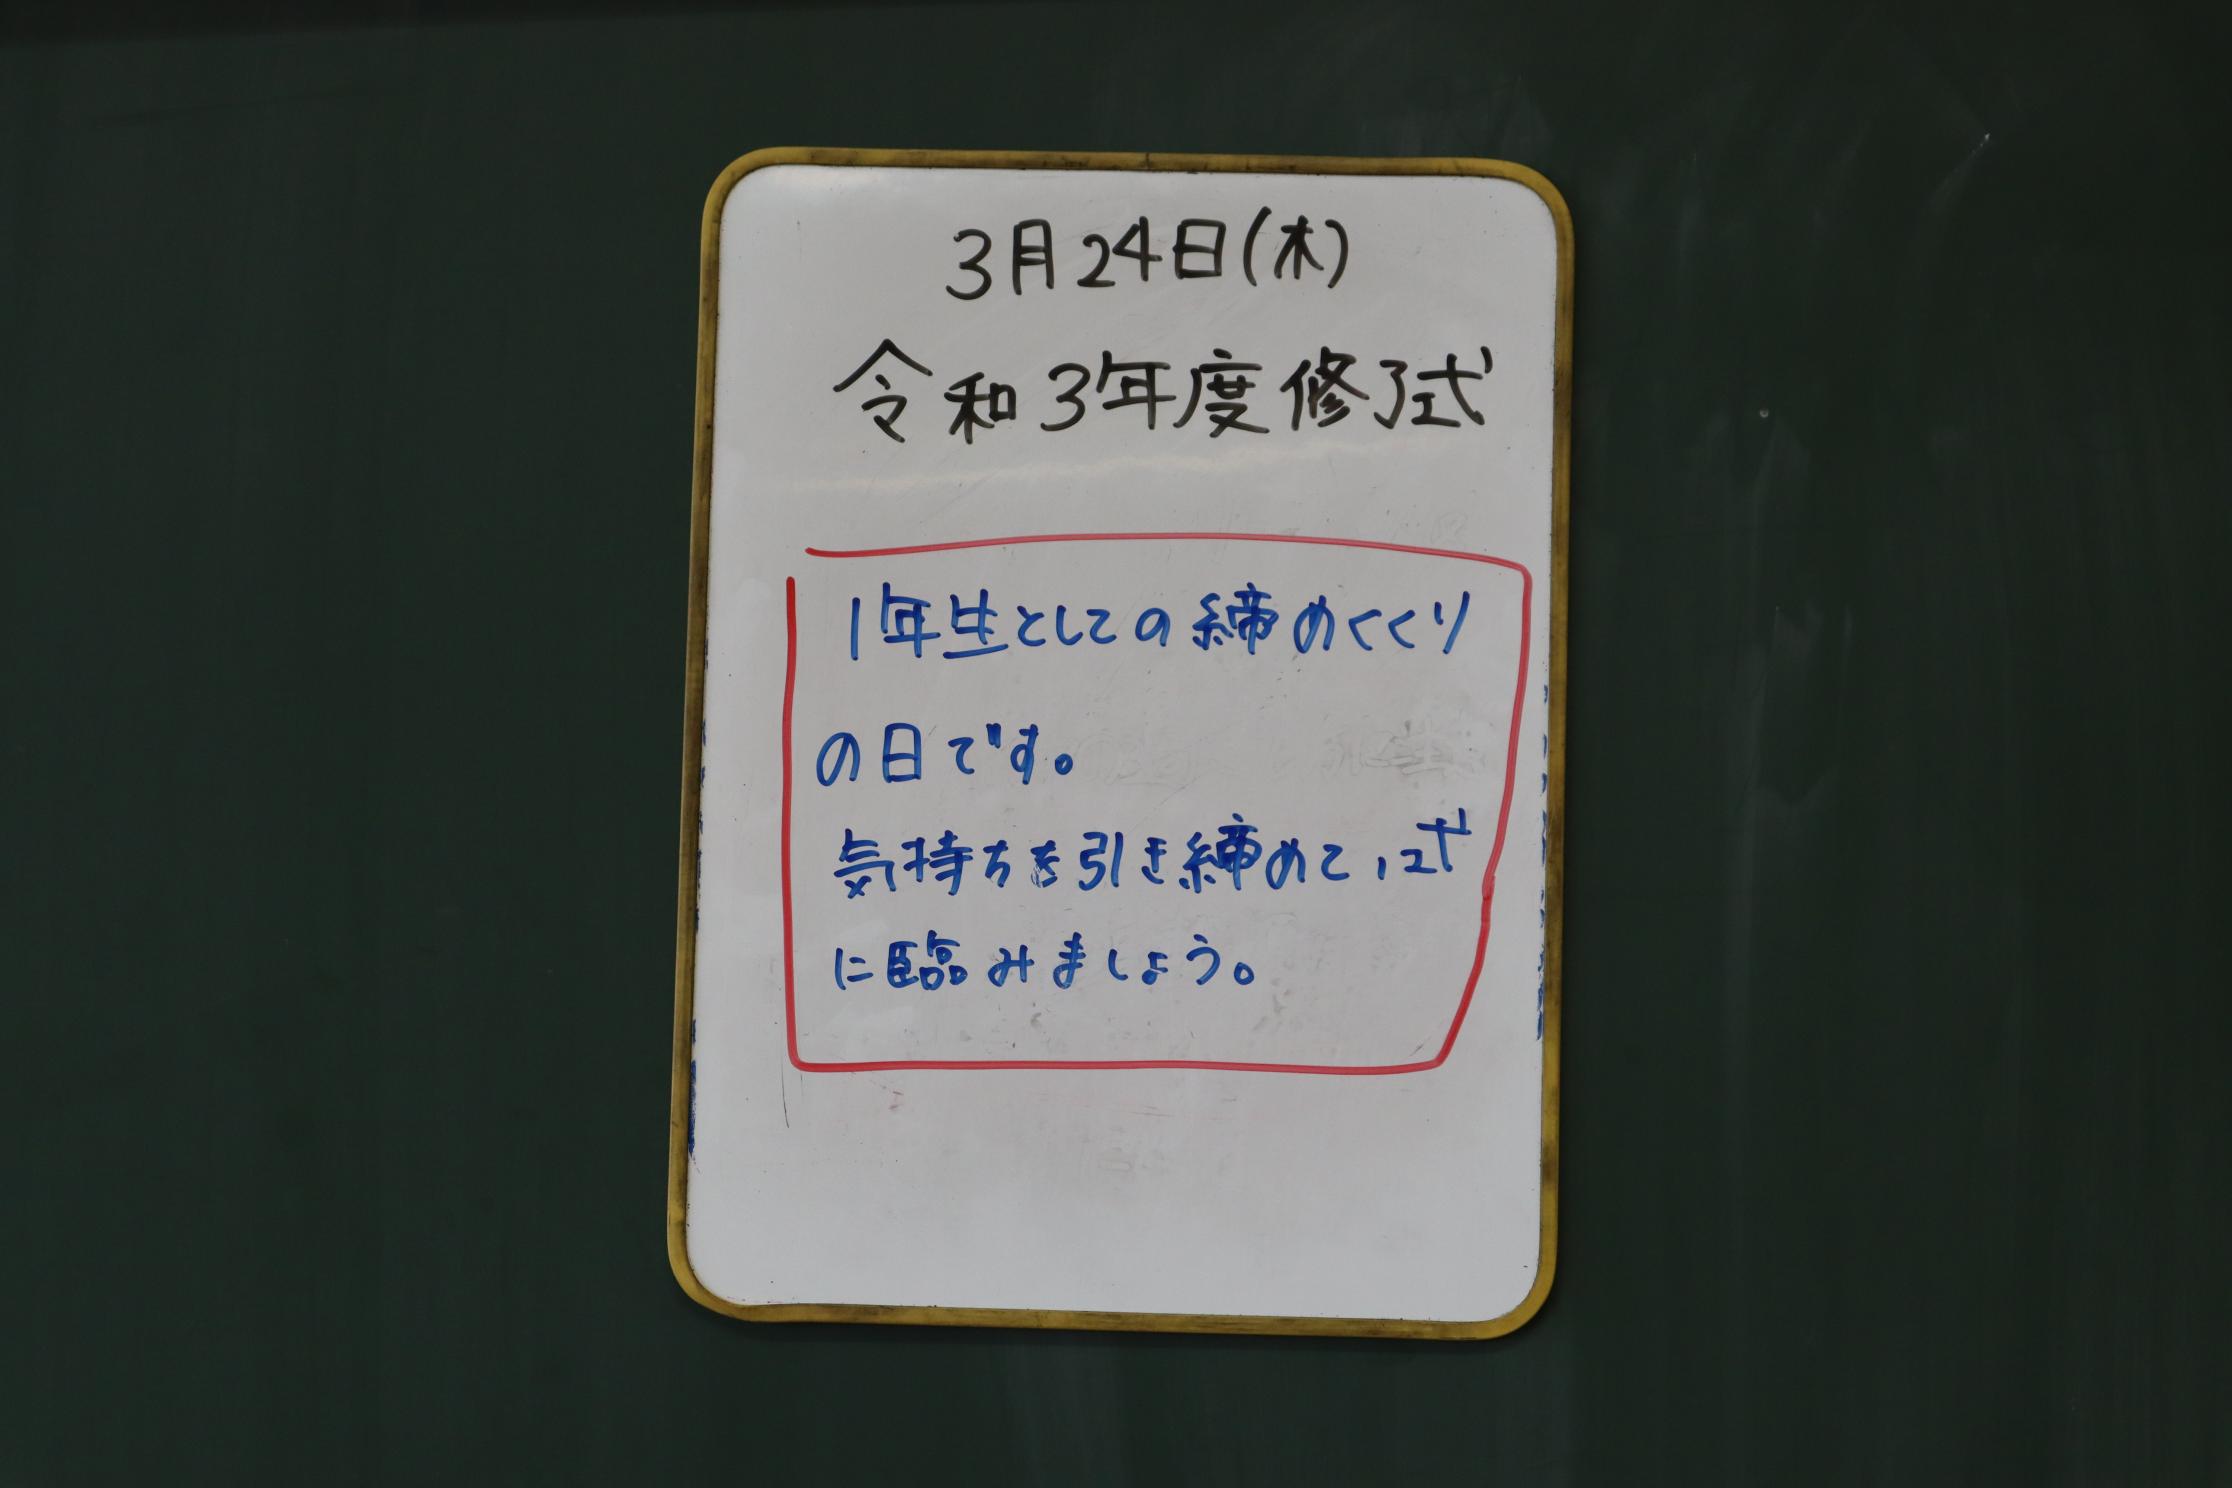 3月24日(木)
令和3年度修了式
1年生としての締めくくり
の日です。
気持ちを引き締めて,式
に臨みましょう。